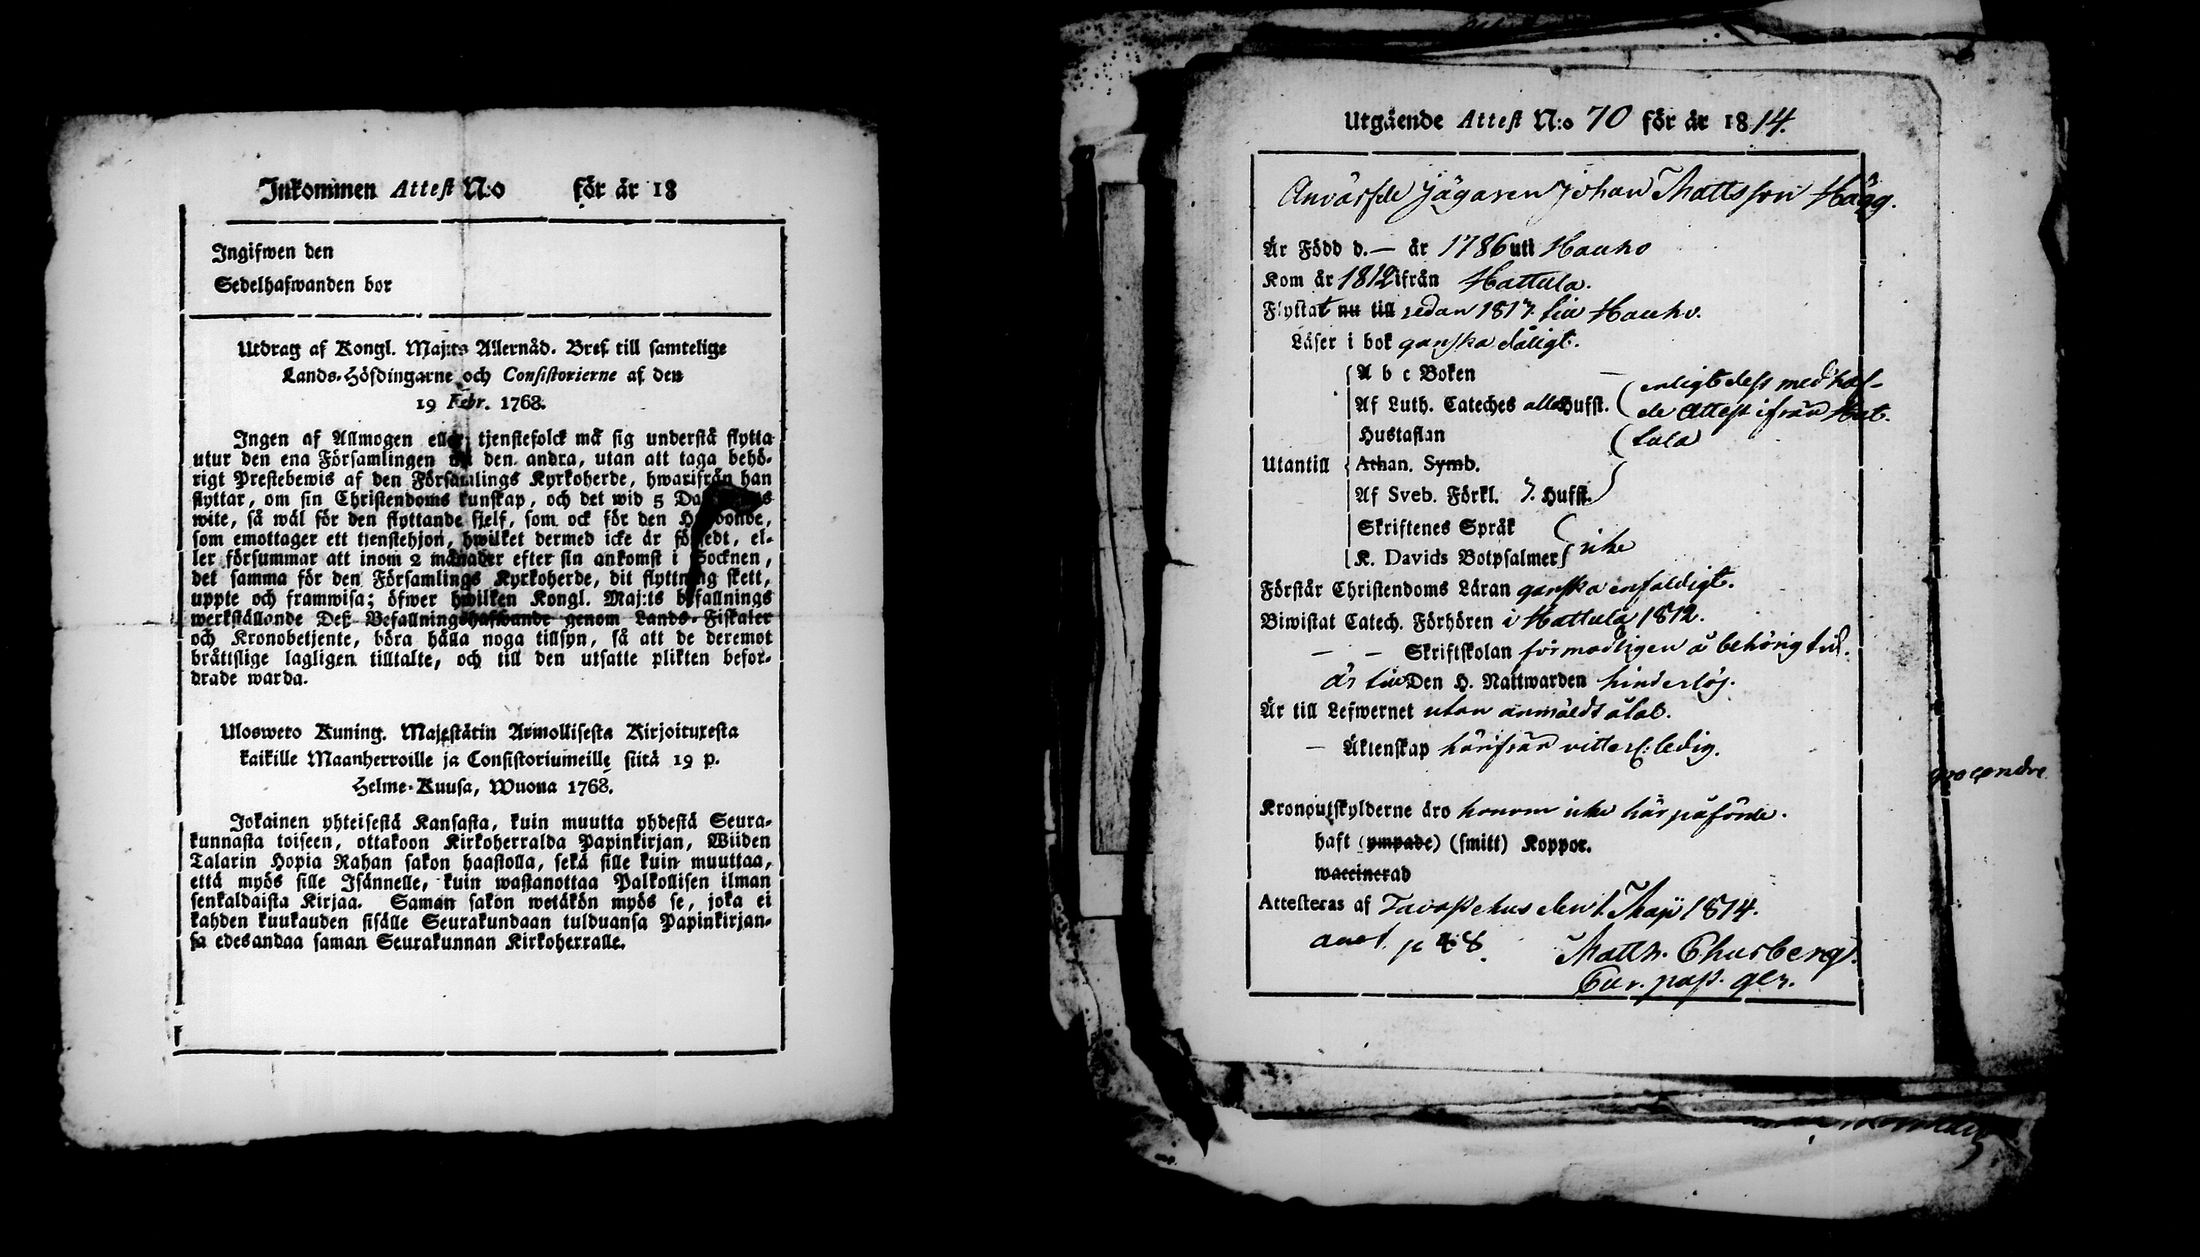 Inkommen Attest N:o för år 18
Ingifwen den
Sedelhafwanden bor
Utdrag af Kongl. Maj:ts Allernåd. Bref till samtelige
Lands-Höfdingarne och Consistorierne af den
19 Febr. 1768.
Ingen af Allmogen eller tjenstefolck må sig understå flytta
utur den ena Församlingen den andra, utan att taga behö-
rigt Prestebewis af den Församlings Kyrkoherde, hwarifrån han
flyttar, om sin Christendoms kunskap, och det wid 5
wite, så wäl för den flyttande sjelf, som ock för den Husbonde,
som emottager ett tjenstehjon, hwilket dermed icke är försedt, el-
ler försummar att inom 2 månader efter sin ankomst i Socknen,
det samma för den Församlings Kyrkoherde, dit flyttning skett,
uppte och framwisa; öfwer hwilken Kongl. Maj:ts befallnings
werkställande Deß Befallningshafwande genom Lands-Fiskaler
och Kronobetjente, böra hålla noga tillsyn, så att de deremot
bråttslige lagligen tilltalte, och till den utsatte plikten befor-
drade warda.
Ulosweto Kuning. Majestätin Armollisesta Kirjoituxesta
kaikille Maanherroille ja Consistoriumeille siitä 19 p.
Helme-Kuusa, Wuona 1768.
Jokainen yhteisestä Kansasta, kuin muutta yhdestä Seura-
kunnasta toiseen, ottakoon Kirkoherralda Papinkirjan, Wiiden
Talarin Hopia Rahan sakon haastolla, sekä sille kuin muuttaa,
että myös sille Isännelle, kuin wastanottaa Palkollisen ilman
senkaldaista Kirjaa. Saman sakon wetäkön myös se, joka ei
kahden kuukauden sisälle Seurakundaan tulduansa Papinkirjan-
sa edesandaa saman Seurakunnan Kirkoherralle.
Utgående Attest N:o 70 för år 1814.
Afvärfde Jägaren Johan Mattsson Hägg.
Är Född d. — år 1786 uti Hauho
Kom år 1812 ifrån Hattula.
Flyttat nu till redan 1813 till Hauho.
Läser i bok ganska dåligt.
A b c Boken —
enligt dess medhaf-
Af Luth. Cateches alla Hufst. de Attest ifrån Hat-
Hustaflan tula
Utantill Athan. Symb.
Af Sveb. Förkl. 7. Hufst.
Skriftenes Språk
K. Davids Botpsalmer icke
Förstår Christendoms Läran ganska enfaldigt.
Biwistat Catech. Förhören i Hattula 1812.
— — Skriftskolan förmodligen å behörig tid.
är till Den H. Nattwarden hinderlös.
Är till Lefwernet utan anmäldt åtal.
— Äktenskap härifrån vitterl: ledig.
Kronoutskylderne äro honom icke här påförde.
haft (ympade) (smitt) Koppor.
waccinerad
Attesteras af Tavastehus den 1. Maji 1814.
p 48.
Matth. Churberg.
past.